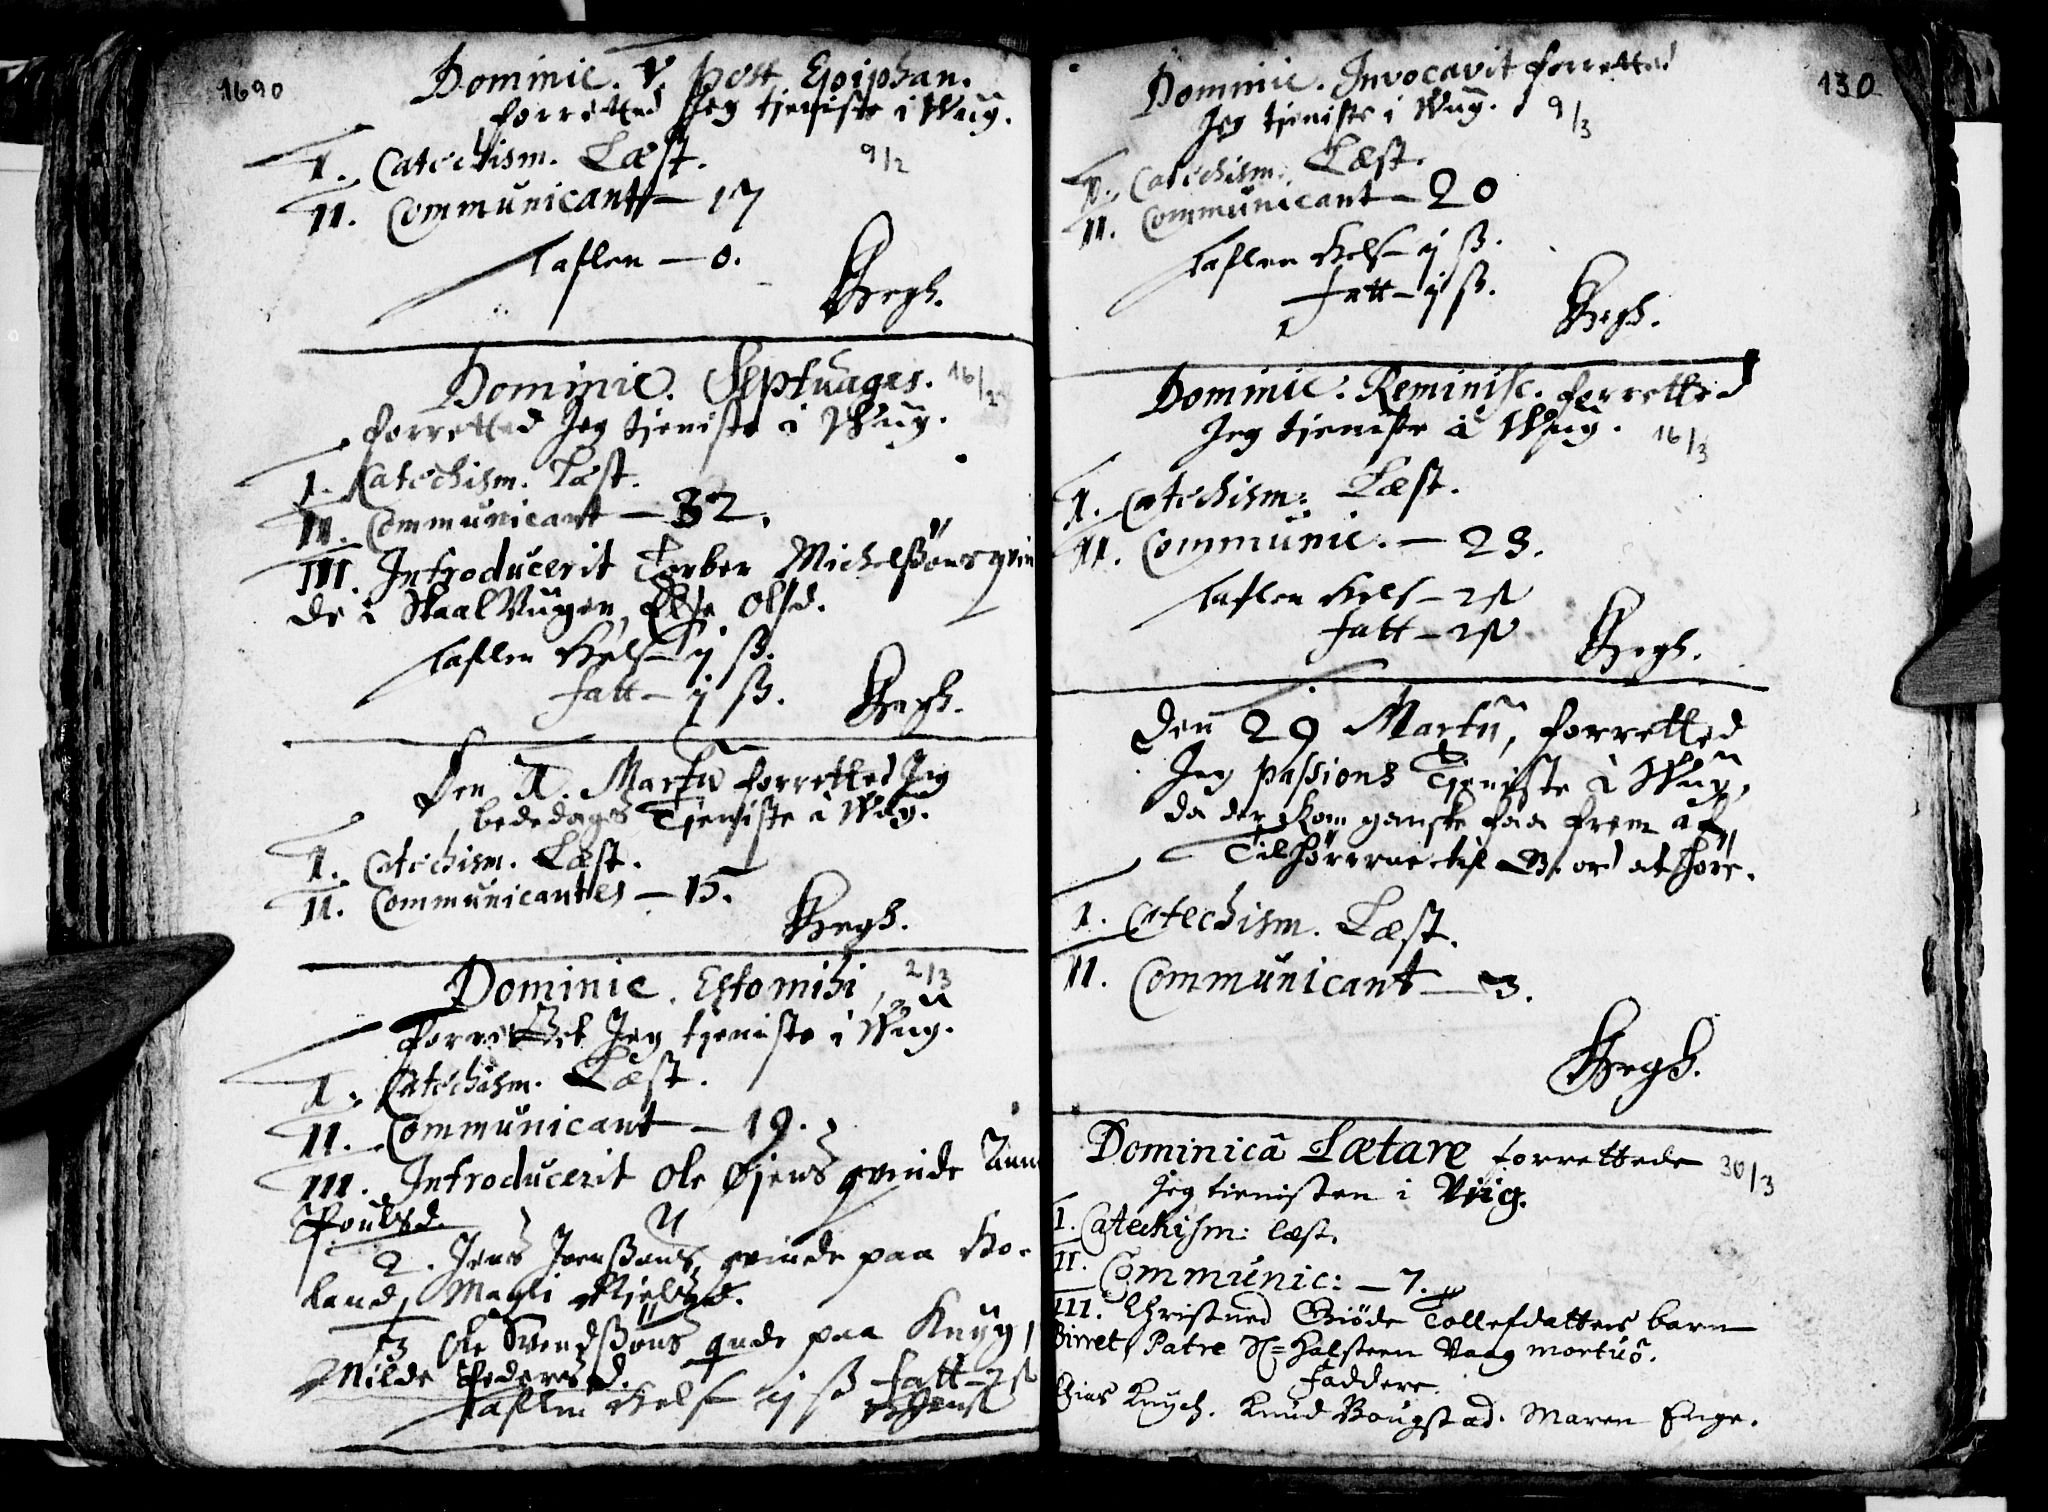 1690
Dominic. V post Epiphan.
forretted Jeg tjeniste i Wiig.
9/2
I. Catechism. Læst.
II. Communicant — 17
Taflen — 0.
Bergh.
Dominic. Septuages. 16/2
forretted Jeg tjeniste i Wiig.
I. Catechism. Læst.
II. Communicant — 32.
III. Introducerit Torber Michelßöns qvin
de i Skaal Vugen, Else Olsd.
Taflen Kelf — ij ß.
fatt — ij ß.
Bergh.
Den 1. Martij forretted Jeg
bededags Tjeniste i Wiig.
I. Catechism. Læst.
II. Communicantes — 15.
Bergh.
Dominic. Estomihi, 2/3
forrettet Jeg tjeniste i Wiig.
I. Catechism. Læst.
II. Communicant — 19.
III. Introducerit Ole Øjens qvinde Ann
Poulsd.
2. Jens Jvenßöns, qvinde paa Ho-
land, Magli
3 Ole Svendßöns qvde paa Knyg,
Milde Pedersd.
Taflen Kelf ij ß fatt — 2 ß
130
Dominic. Invocavit forretted
Jeg tjeniste i Wiig. 9/3
I. Catechism. Læst.
II. Communicant — 20
Taflen Kelf — ij ß.
fatt — ij ß.
Bergh.
Dominic. Reminisc. forretted
Jeg tjeniste i Wiig. 16/3
I. Catechism: Læst.
II. Communic. — 23.
Taflen Kelf — 2 ß
fatt — 2 ß
Bergh.
Den 29 Martij, forretted
Jeg passions Tjeniste i Wiig,
da der kom ganske faa frem af
Tilhörerne til G. ord at höre.
I. Catechism. Læst.
II. Communicant — 3.
Bergh.
Dominicâ Lætare forrettede 30/3
Jeg tienisten i Viig.
I. Catechism: læst.
II. Communic: — 7.
III. Christned Giöde Tollefdatters barn
Birret, Patre Sl= Halsteen Vaag mortuô.
Faddere.
Elias Knych. Knud Bougstad. Maren Enge.